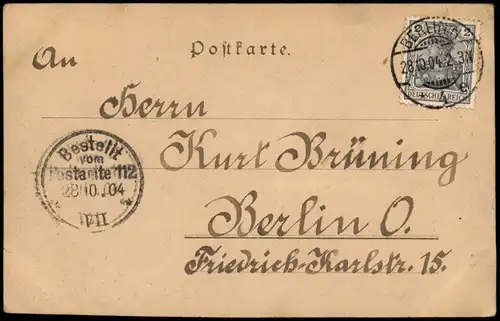 Postkarte.
An
BERLIN N 2
28.10.04. 2-3N
DEUTSCHES REICH
Herrn
Kurt Brüning
Bestellt
vom
Postamte 112
28/10.04
Berlin O.
Friedrich-Karlstr. 15.